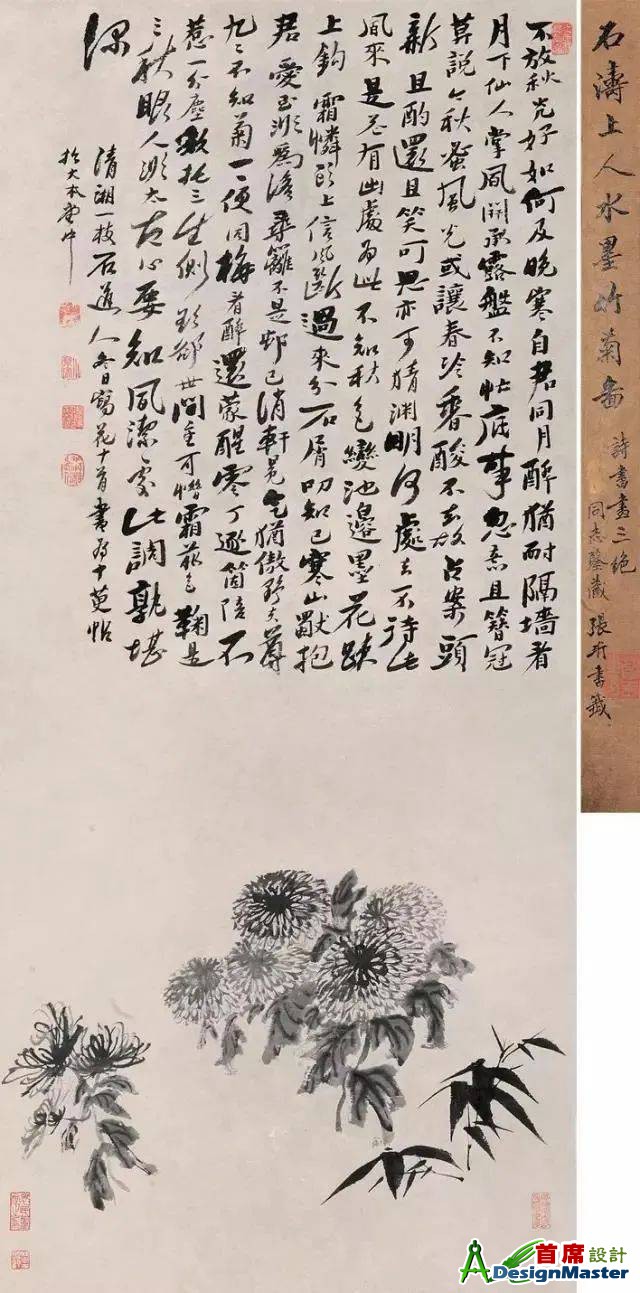 石濤上人水墨竹菊畵
詩書畫三絕
同志鑒藏 張珩書籤
不放秋光好如何及晚寒自君同月醉猶耐隔墻看
月下仙人掌風開承露盤不知忙底事忽忘且簪冠
莫說三秋盡風光或讓春冷香酸不去故占案頭
新且酌還且笑可思亦可猜淵明何處去不待此
風來是花有幽處為此不知秋色變池邊墨花跌
上鈎霜憐頭上信風斷過來分石屑叨知己寒山獻抱
君愛玉漸為澹尋籬不是邨已消軒冕氣猶傲野夫尊
九九不知菊一一便同梅看醉還蒙醒零丁遜箇陪不
惹一分塵三生側卻世間重可憐霜花色鞠是
三秋眼人澹太古心要知風潔處此調孰堪
深
清湘一枝石道人冬日寫花十首書為十帖
於大本堂中
首席設計
DesignMaster